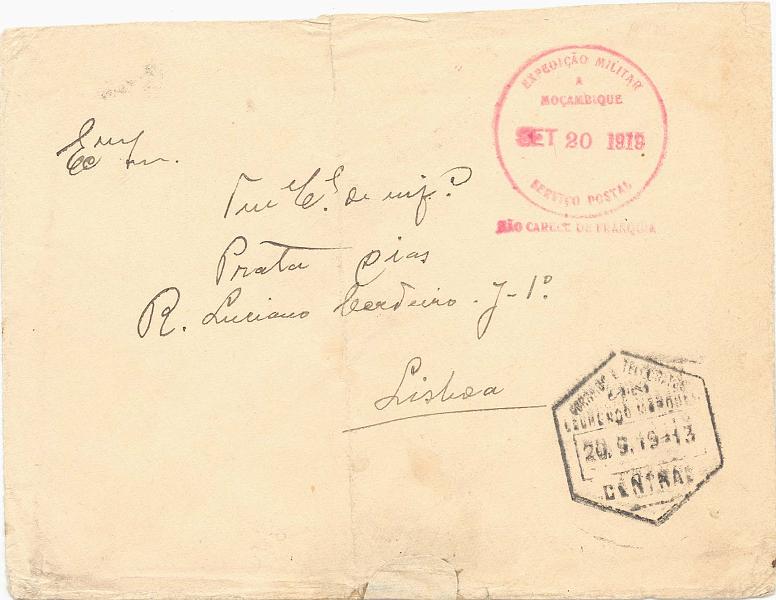 EXPEDIÇÃO MILITAR
A
MOÇAMBIQUE
SET 20 1919
SERVIÇO POSTAL
NÃO CARECE DE FRANQUIA
Exmº
Sr.
Ten C.el de inf.ª
Prata Dias
R. Luciano Cordeiro. J-1º
Lisboa
CORREIOS E TELEGRAFOS
LOURENÇO MARQUES
20.9.19-13
CENTRAL